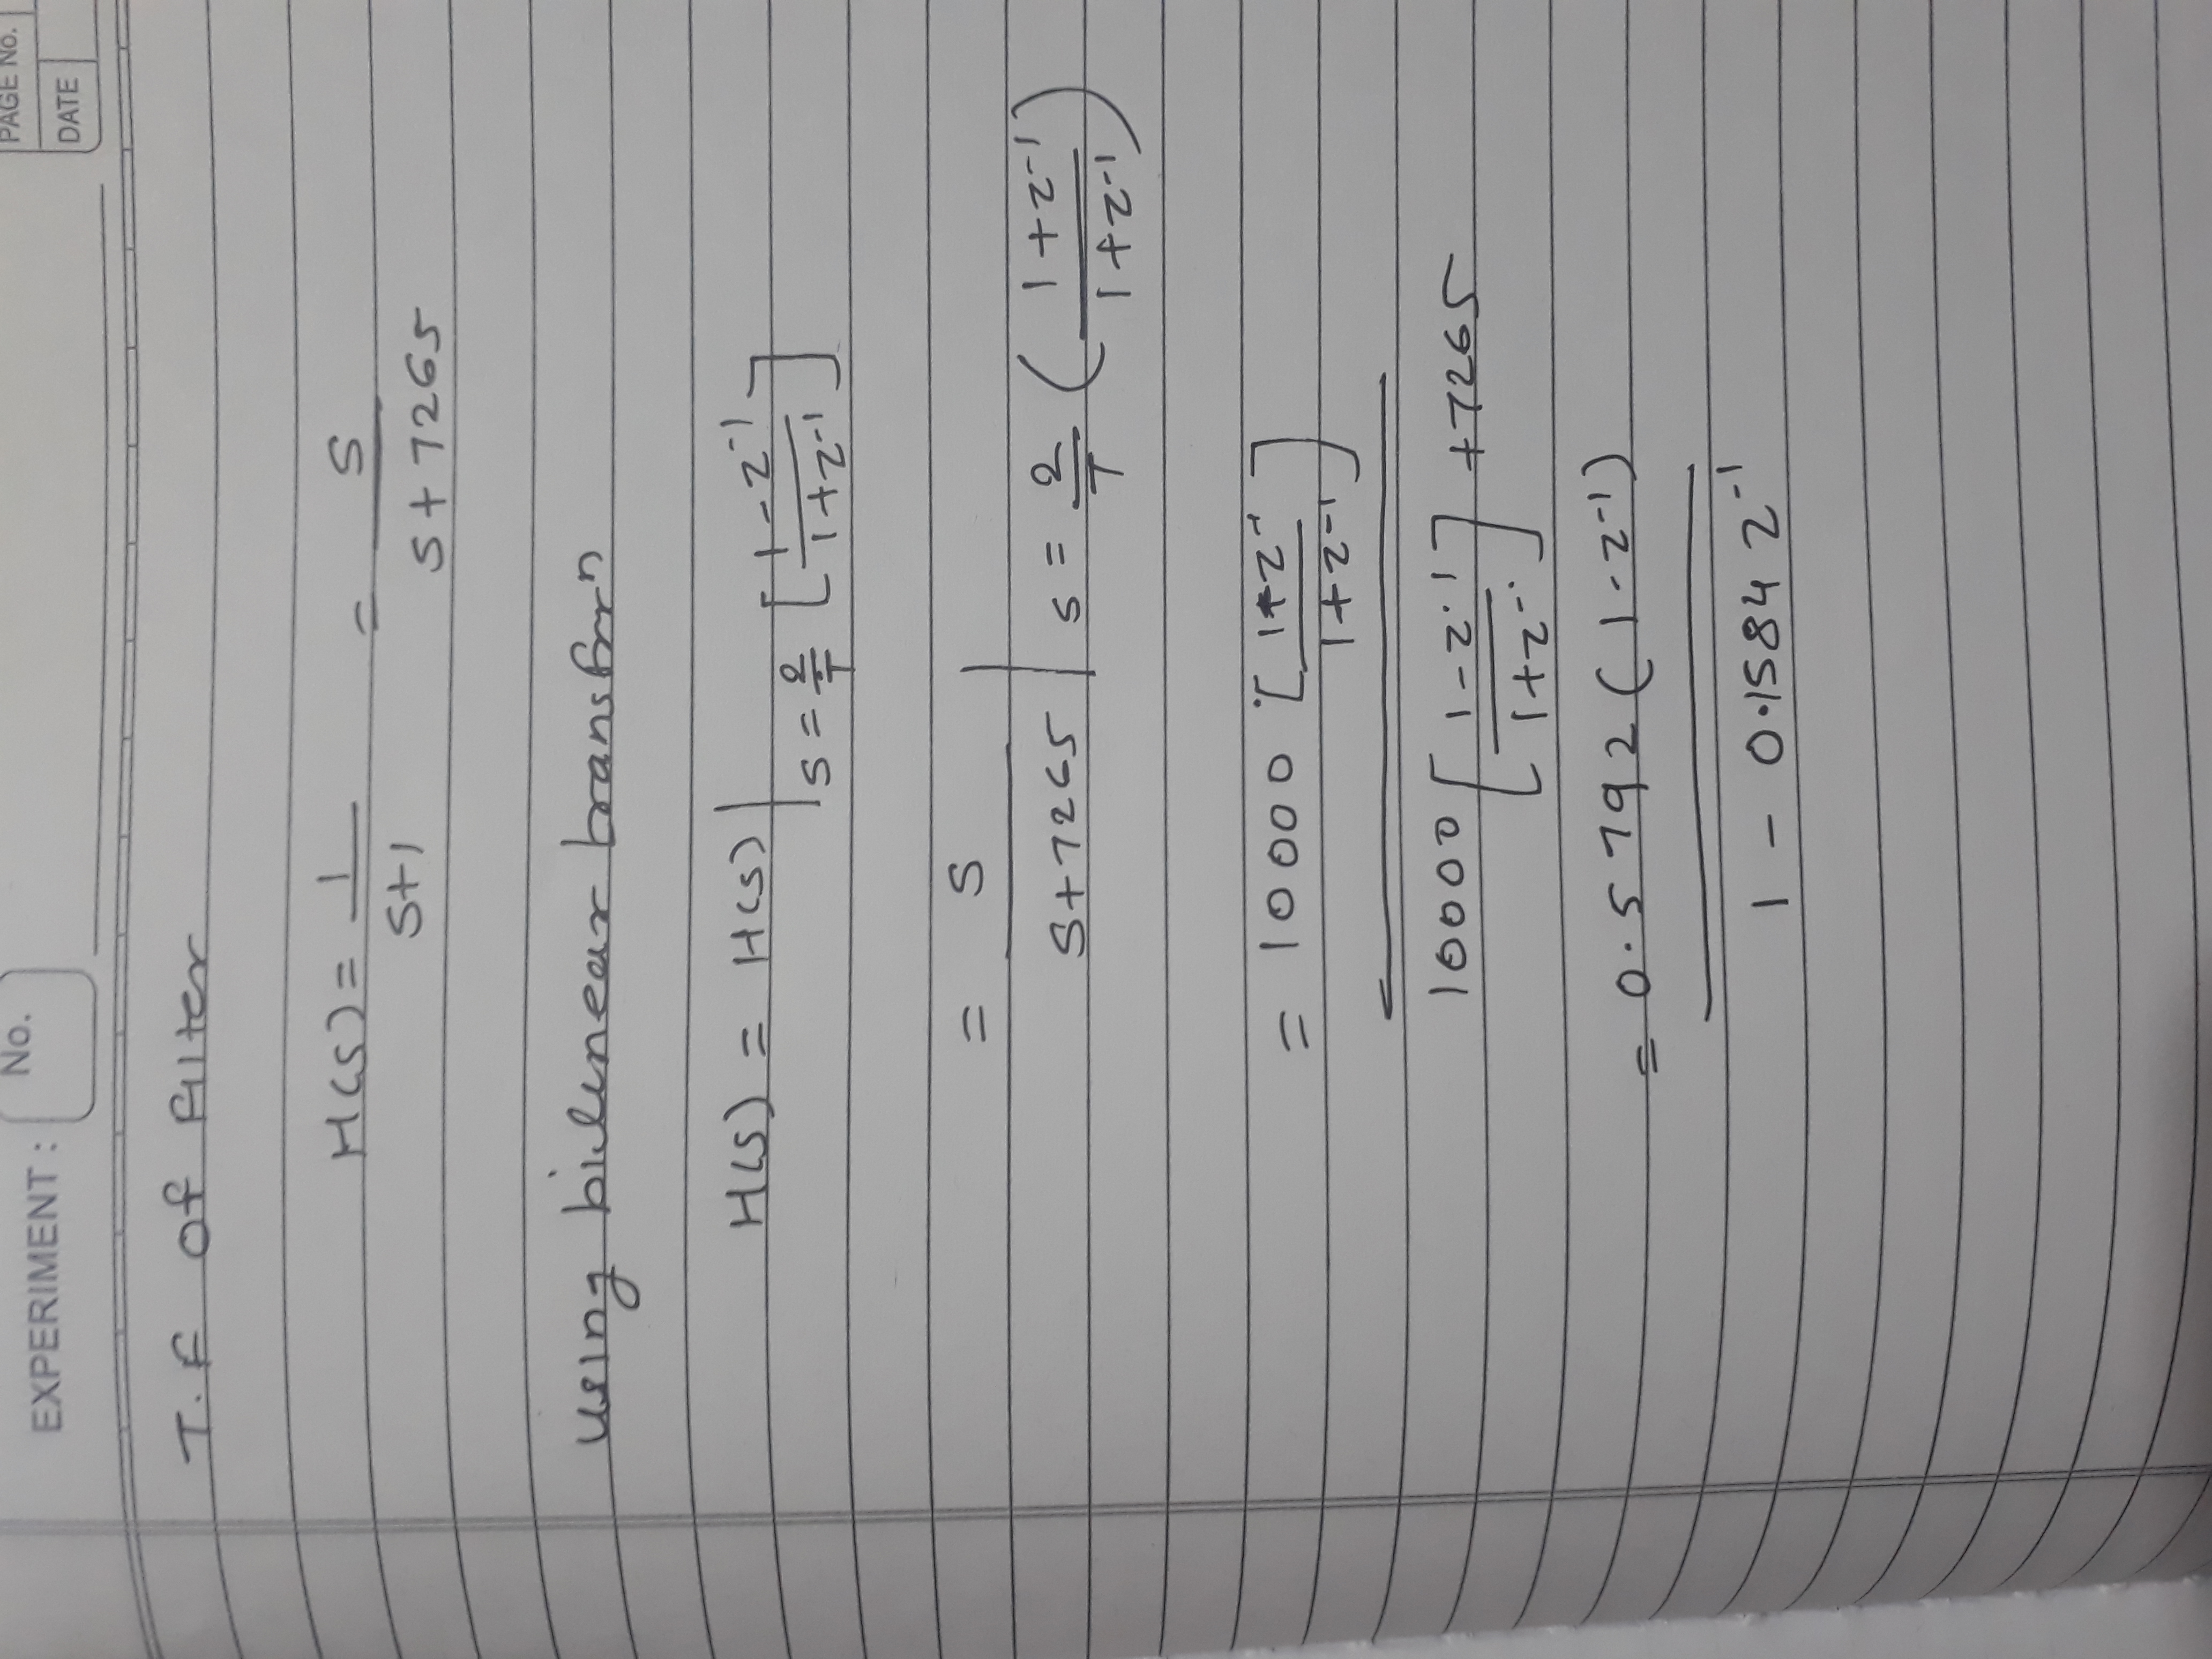 EXPERIMENT : No.
PAGE No.
DATE
T.F of Filter
H(s) = 1/(s+1) = s/(s+7265)
using bilinear transform
H(s) = H(s) | s = 2/T [(1-z⁻¹)/(1+z⁻¹)]
= s/(s+7265) | s = 2/T ((1+z⁻¹)/(1+z⁻¹))
= 10000 [(1+z⁻¹)/(1+z⁻¹)]
10000 [(1-z⁻¹)/(1+z⁻¹)] +7265
= 0.5792 (1-z⁻¹)
1 - 0.1584 z⁻¹